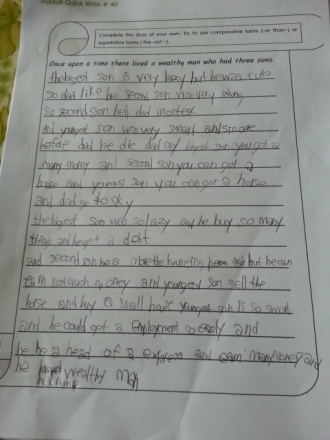 Quick Write # 40
Complete the story of your own. Try to use comparative forms (-er than-) or
superlative forms ( the -est -).
Once upon a time there lived a wealthy man who had three sons.
the bigest son is very lazy but he was cute
so dad like his second son was very strong
so second son help dad
and youngest son was very smart and sincere
before dad he die dad say bigest son you got a
many money and second son you can got a
house and youngest son you can got a horse
and dad go to sky
the bigest son was so lazy any he buy so many
thing and he got a debt
and second son he a but he can
earn not such money and youngery son sell the
horse and buy a small house youngest son is so smart
and he could get a employment so easly and
he he a head of a express and earn many money and
he wealthy man